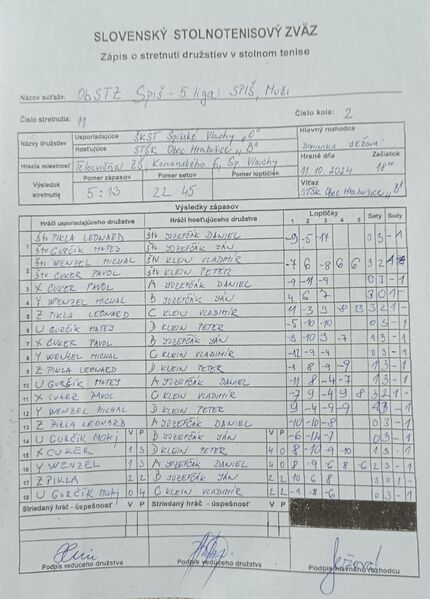 SLOVENSKÝ STOLNOTENISOVÝ ZVÄZ
Zápis o stretnutí družstiev v stolnom tenise
Názov súťaže: ObSTZ SPIŠ - 5. liga SPIŠ, Muži
Číslo stretnutia: 11 Číslo kola: 2
Názvy družstiev Usporiadajúce ŠKST Spišské Vlachy "C" Hlavný rozhodca
Hosťujúce STŠK Obec Hrabušice "B" DOMINIKA
Hrané dňa Začiatok
Hracia miestnosť Telocvičňa ZŠ, Komenského 6, Sp. Vlachy 11.10.2024 18
Výsledok stretnutia Pomer zápasov Pomer setov Pomer loptičiek Víťaz
5:13 22:45 STŠK Obec Hrabušice "B"
Výsledky zápasov
Hráči usporiadajúceho družstva Hráči hosťujúceho družstva Loptičky Sety Body
1 2 3 4 5
Štv PIKLA LEONARD Štv JOZEFČÁK DANIEL -9 -5 -17 0 3 - 1
Štv GURČÍK MATEJ Štv JOZEFČÁK JÁN
Štv WENZEL MICHAL Štv KLEIN VLADIMÍR -7 6 -8 6 6 3 2
Štv CUKER PAVOL Štv KLEIN PETER
3 X CUKER PAVOL A JOZEFČÁK DANIEL -9 -11 -9 0 3 - 1
4 Y WENZEL MICHAL B JOZEFČÁK JÁN 4 6 7 3 0 1 -
5 Z PIKLA LEONARD C KLEIN VLADIMÍR 11 -3 9 -8 13 3 2 1 -
6 U GURČÍK MATEJ D KLEIN PETER -5 -10 -10 0 3 - 1
7 X CUKER PAVOL B JOZEFČÁK JÁN 1 3 - 1
8 Y WENZEL MICHAL C KLEIN VLADIMÍR -12 -9 -4 0 3 - 1
9 Z PIKLA LEONARD D KLEIN PETER 1 3 - 1
10 U GURČÍK MATEJ A JOZEFČÁK DANIEL -11 8 -4 -7 1 3 - 1
11 X CUKER PAVOL C KLEIN VLADIMÍR -7 9 -4 9 8 3 2 1 -
12 Y WENZEL MICHAL D KLEIN PETER 9 -4 -9 -9 3 - 1
13 Z PIKLA LEONARD A JOZEFČÁK DANIEL -10 -10 -8 0 3 - 1
14 U GURČÍK MATEJ V P B JOZEFČÁK JÁN V P -6 -12 -7 0 3 - 1
15 X CUKER 1 3 D KLEIN PETER 4 0 1 3 - 1
16 Y WENZEL 1 3 A JOZEFČÁK DANIEL 4 0 8 -9 -6 8 2 3 - 1
17 Z PIKLA 2 2 B JOZEFČÁK JÁN 2 2 10 6 8 3 0 1 -
18 U GURČÍK MATEJ 0 4 C KLEIN VLADIMÍR 2 2 -1 -8 -6 0 3 - 1
Striedaný hráč - úspešnosť V P Striedaný hráč - úspešnosť V P
Podpis vedúceho družstva Podpis vedúceho družstva Podpis hlavného rozhodcu